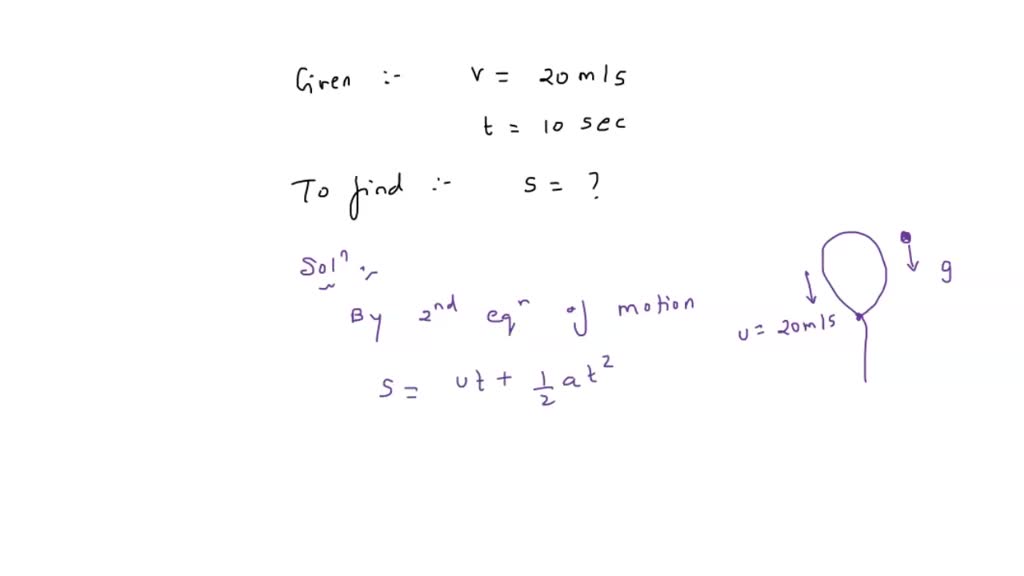 Given :- v = 20 m/s
t = 10 sec
To find :- s = ?
Solⁿ :-
By 2nd eqⁿ of motion
s = ut + 1/2 at²
g
u = 20m/s